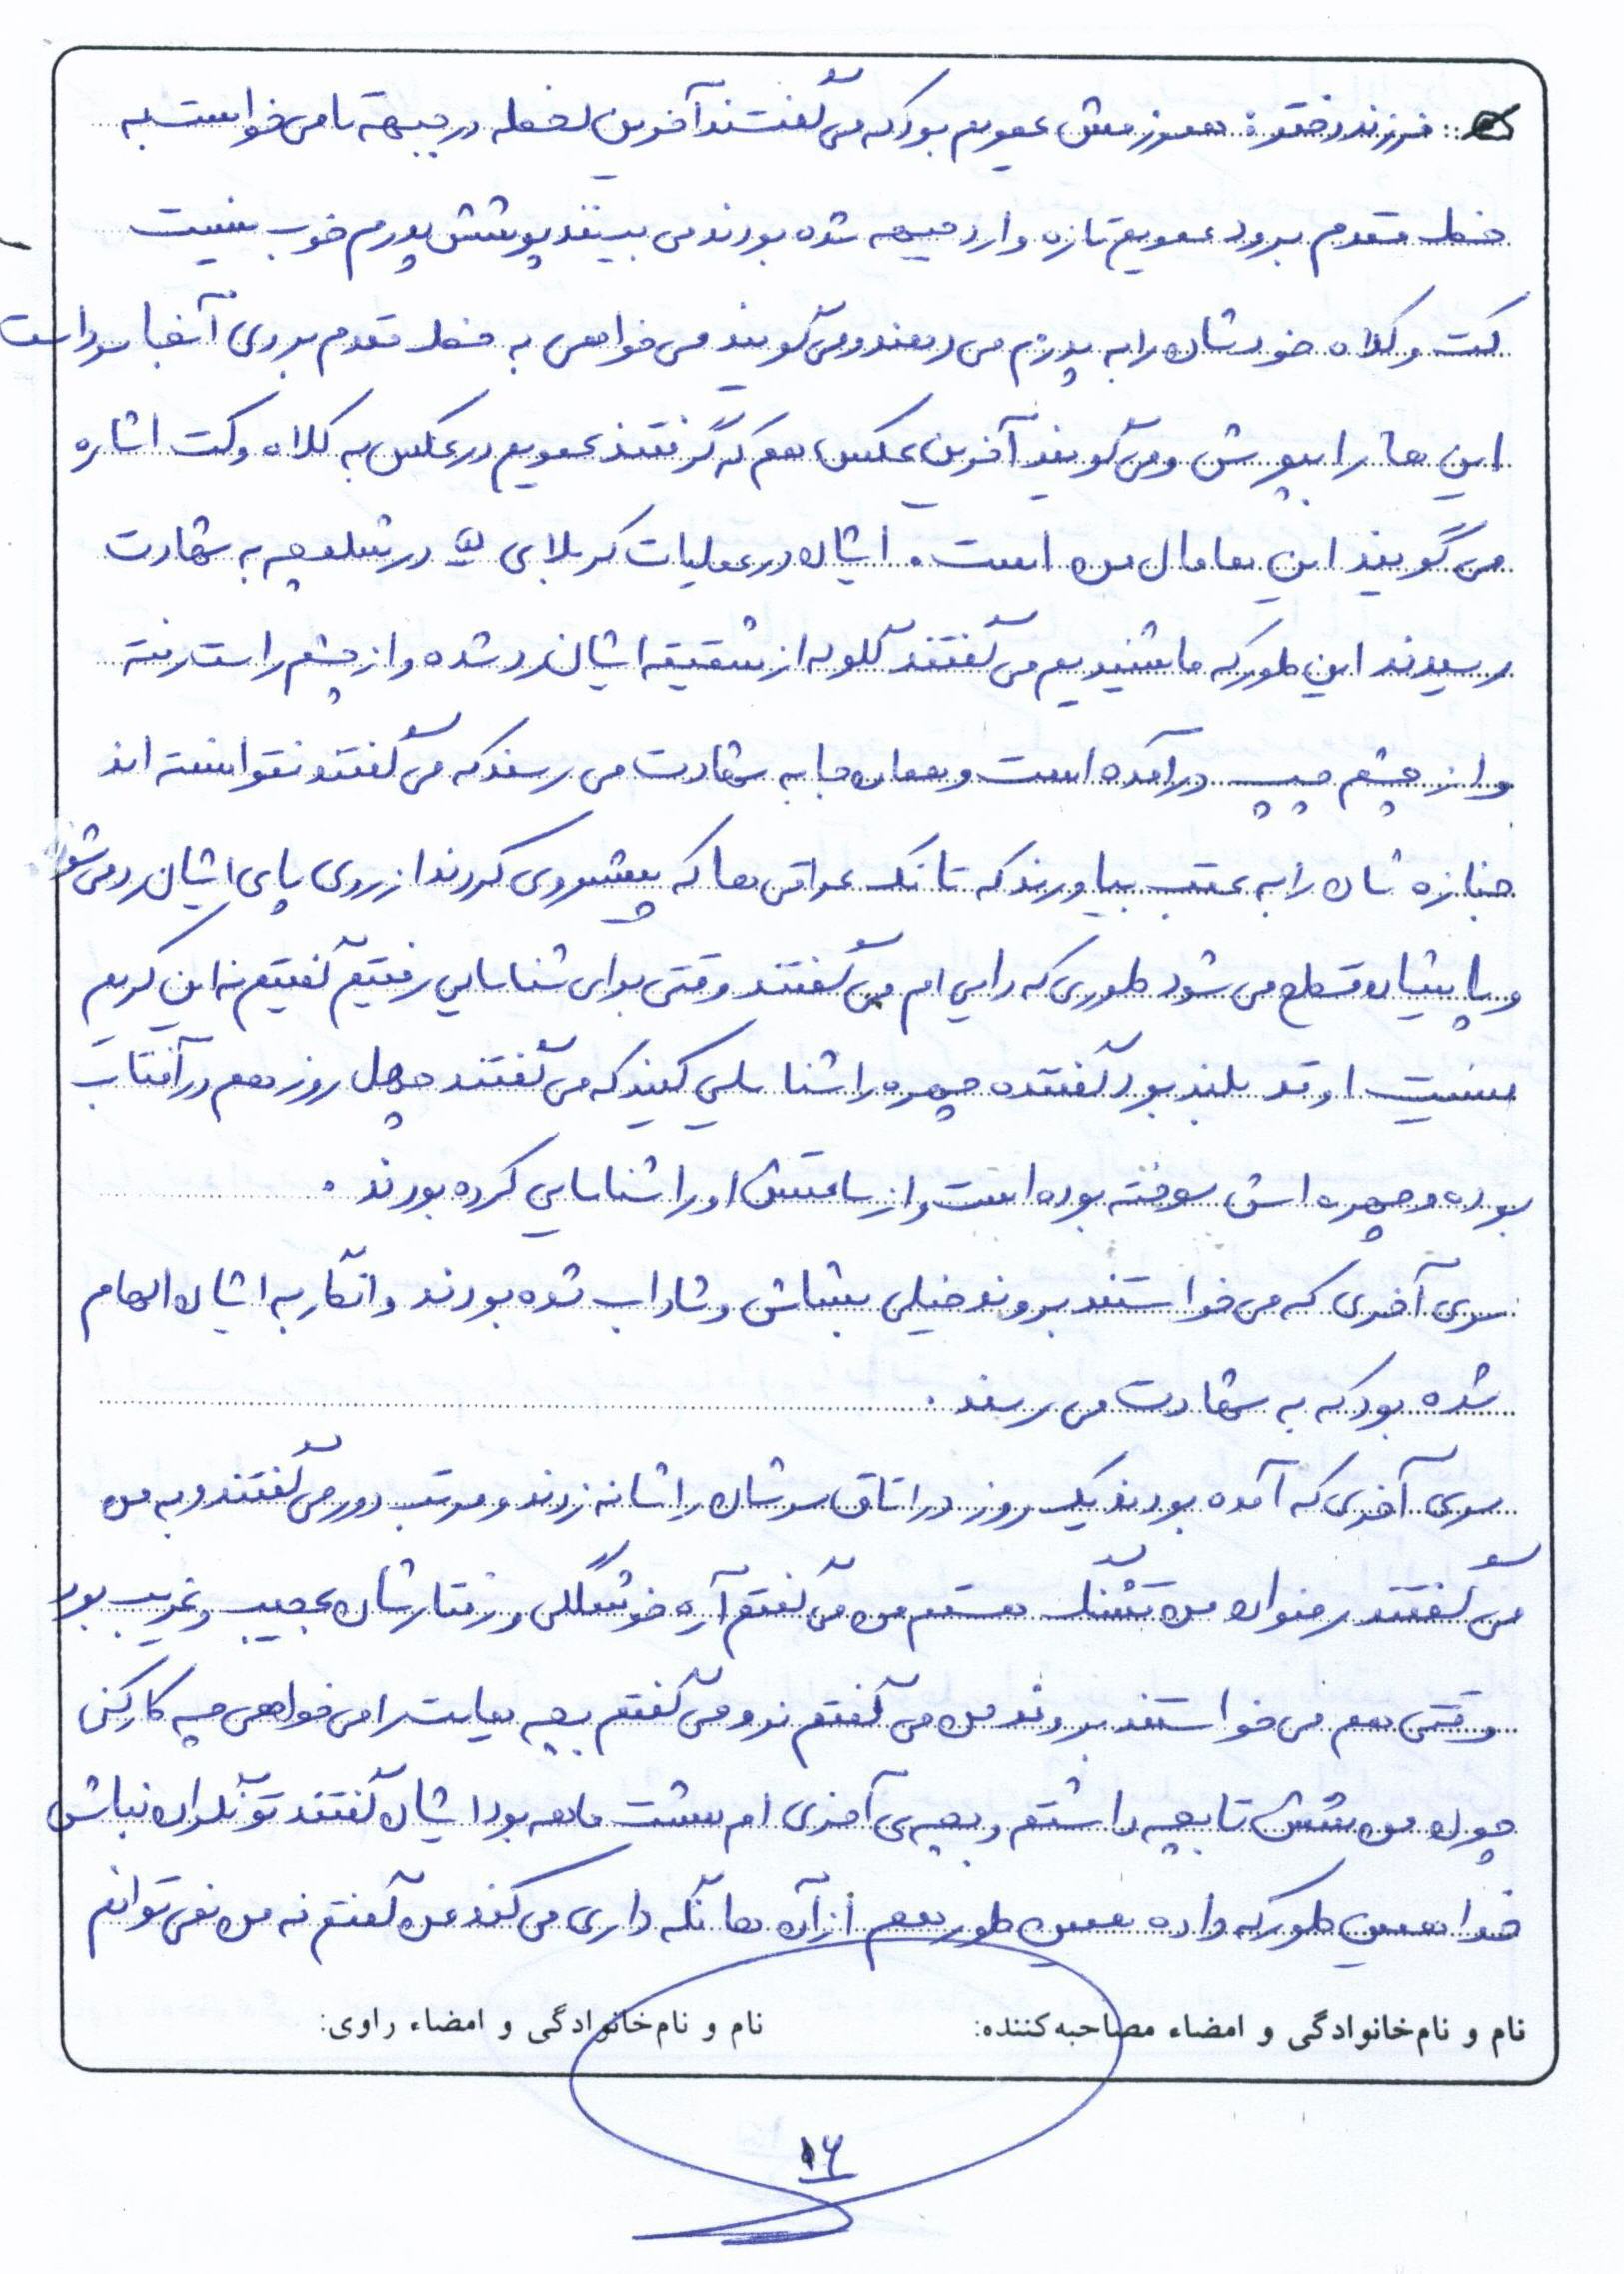 فرزند دختر: همرزمش عمویم بود که می گفتند آخرین لحظه در جبهه تا می خواست به
خط مقدم برود عمویم تازه وارد جبهه شده بودند می بینند پوشش پدرم خوب نیست
کت و کلاه خودشان را به پدرم می دهند و می گویند می خواهی به خط مقدم بروی آنجا سرد است
این ها را بپوش و می گویند آخرین عکس هم که گرفتند عمویم در عکس به کلاه و کت اشاره
می گویند این ها مال من است. ایشان در عملیات کربلای ۵ در شلمچه به شهادت
رسیدند این طور که ما شنیدیم می گفتند گلوله از شقیقه ایشان رد شده و از چشم راست رفته
و از چشم چپ درآمده است و همان جا به شهادت می رسند که می گفتند نتوانسته اند
جنازه شان را به عقب بیاورند که تانک عراقی ها که پیشروی کردند از روی پای ایشان رد می شود
و پایشان قطع می شود طوری که دایی ام می گفتند وقتی برای شناسایی رفتیم گفتیم نه این کریم
نیست او قد بلند بود گفتنده چهره را شناسایی کنید که می گفتند چهل روز هم در آفتاب
بوده و چهره اش سوخته بوده است و از ساعتش او را شناسایی کرده بودند.
سری آخری که می خواستند بروند خیلی بشاش و شاداب شده بودند و انگار به ایشان الهام
شده بود که به شهادت می رسند.
سری آخری که آمده بودند یک روز در اتاق سرشان را شانه زدند و مرتب دور می گفتند و به من
می گفتند رضوان من قشنگ هستم من می گفتم آره خوشگلی و رفتارشان عجیب و غریب بود
وقتی هم می خواستند بروند من می گفتم نرو می گفتم بچه هایت را می خواهی چه کار کنی
چون من شش تا بچه داشتم و بچه ی آخری ام هشت ماهه بود ایشان گفتند تو نگران نباش
خدا همین طور که داده همین طور هم از آن ها نگه داری می کند من گفتم نه من نمی توانم
نام و نام‌خانوادگی و امضاء مصاحبه‌کننده:
نام و نام‌خانوادگی و امضاء راوی:
۱۶